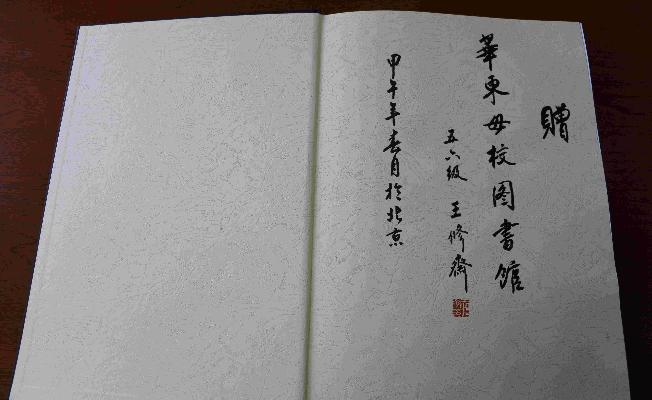 贈
華東母校图書館
五六级 王修齋
甲午年春月於北京